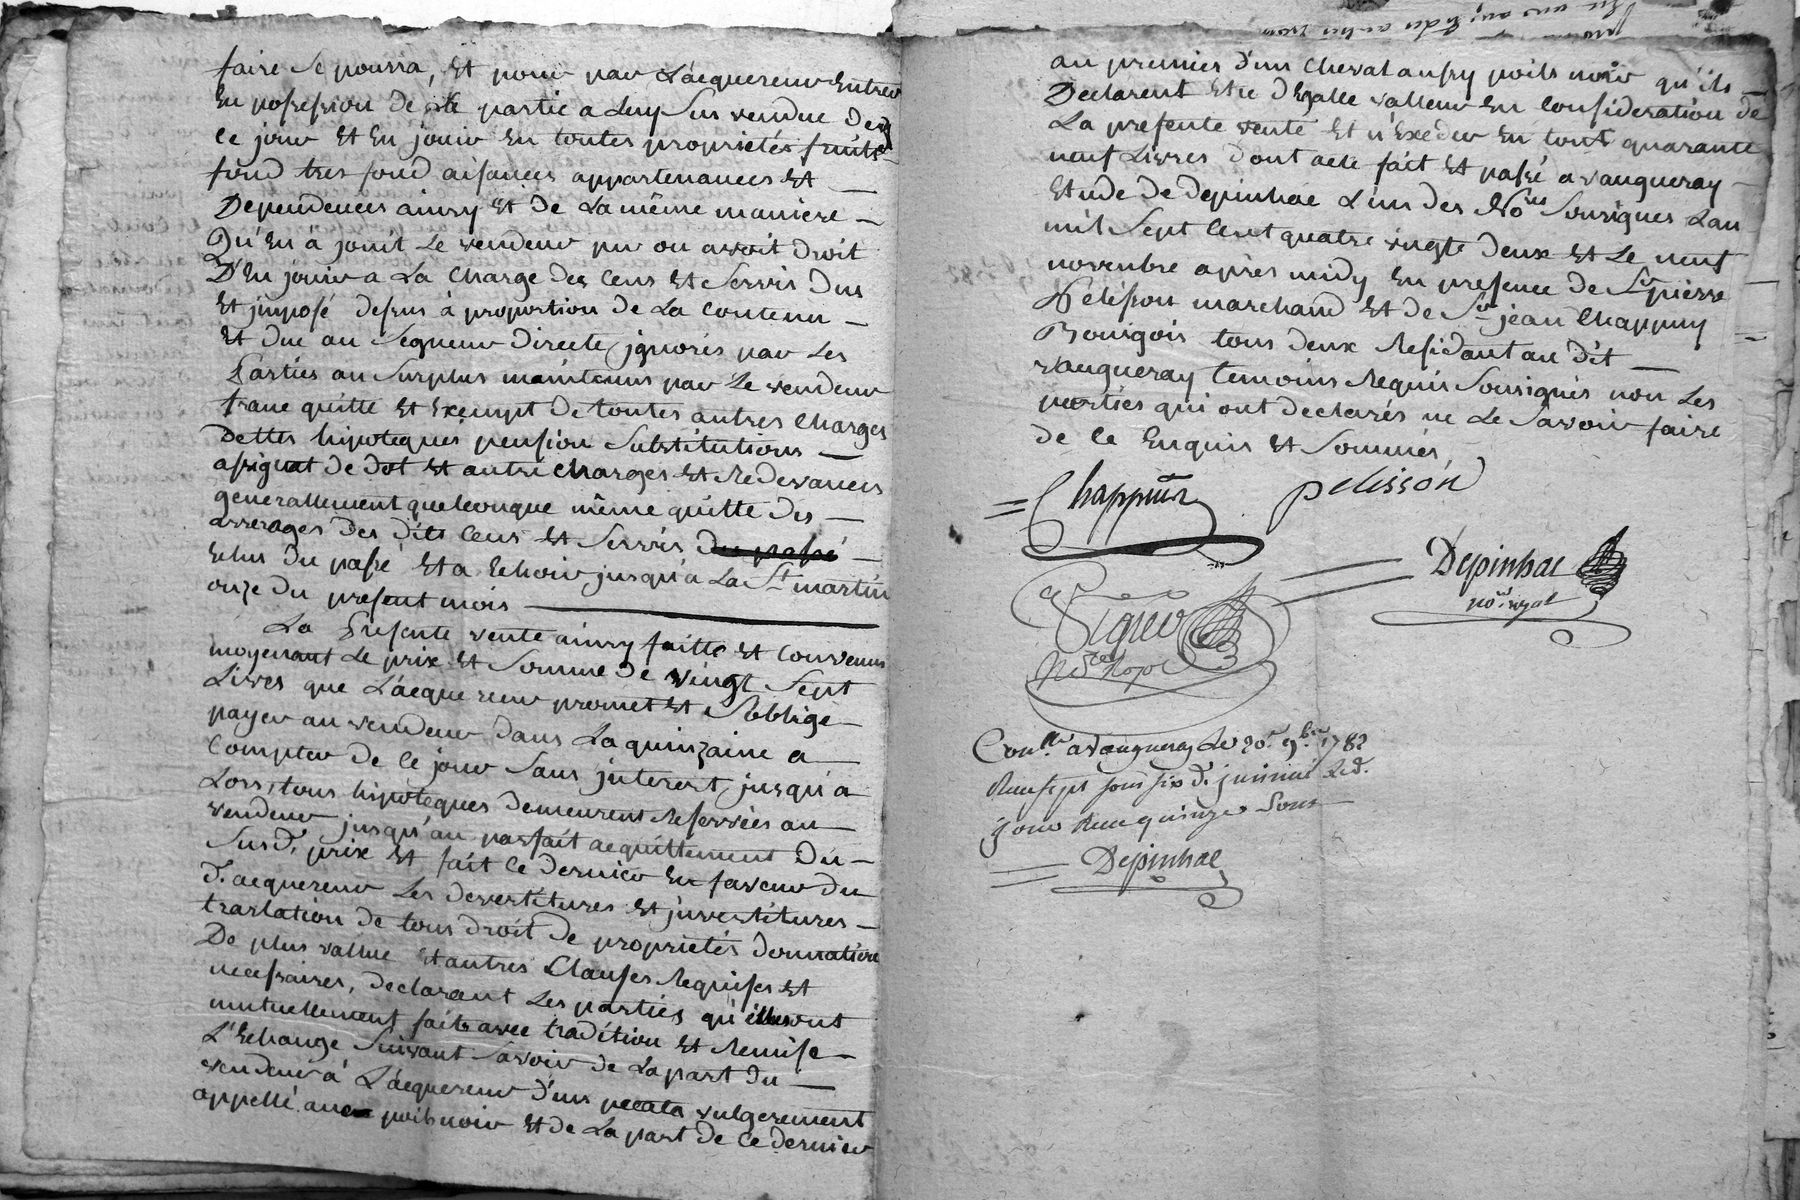 faire se pourra, Et pour par L'acquereur Entrer
En possession de ditte partie a Luy sus vendue des
ce jour Et En jouir En toutes proprietés fruits
fond tres fond aisances appartenances Et —
Dependences ainsy Et de La même maniere —
Qu'En à jouit Le vendeur pu ou avoit droit
D'En jouir a La charge des Cens Et servis dus
Et jmposé dessus à proportion de La contenu —
Et due au segneur Directe, jgnorés par Les
Parties au surplus maintenus par Le vendeur
franc quitte Et Exempt de toutes autres charges
Dettes hipoteques pension substitutions —
assignat de dot Et autre charges Et Redevances
generallement quelconque même quitte des —
arrerages des dits Cens Et servis du passé —
Echus du passé Et a Echoir jusqu'a La St martin
onze du present mois —
La Presente vente ainsy faitte Et convenus
moyenant Le prix Et somme de vingt sept
Livres que L'acquereur promet Et s'oblige
payer au vendeur dans La quinzaine a —
compter de ce jour sans jnterest, jusqu'a
Lors, tous hipoteques demeurent Reservées au —
vendeur jusqu'au parfait acquittement du —
susd. prix Et fait ce dernier En faveur du
d. acquereur Les devestitures Et jnvestitures —
traslation de tous droit de proprietés dernatiere
De plus vallue Et autres Clauses Requises Et
necessaires, declarant Les parties qu'elles ont
mutuellement faite avec tradition Et Remise —
L'Echange suivant savoir de La part du —
vendeur à L'acquereur d'un vulgerement
appellé ane poils noir Et de La part de ce dernier
au premier d'un cheval aussy poils noir qu'ils —
Declarent Etre d'Egalle valleur En consideration de
La presente vente Et n'Exeder En tout quarante
neuf Livres dont acte fait Et passé a vaugneray —
Etude de depinhac L'un des Nores sousignes L'an
mil sept Cent quatre vingt deux Et Le neuf
novembre après midy En presence de Sr pierre
Pelisson marchand Et de Sr jean Chappuy
Bourgois tous deux Residant au dit —
vaugneray temoins Requis sousignés non Les
parties qui ont declarés ne Le savoir faire
de ce Enquis Et sommés,
Chappuis pelisson
Depinhac
nore royal
Vigneo
Nore Royal
Conllé a Vaugneray Le 20e 9bre 1782
Reçu sept sous six d.
Reçu quinze sous
Depinhac